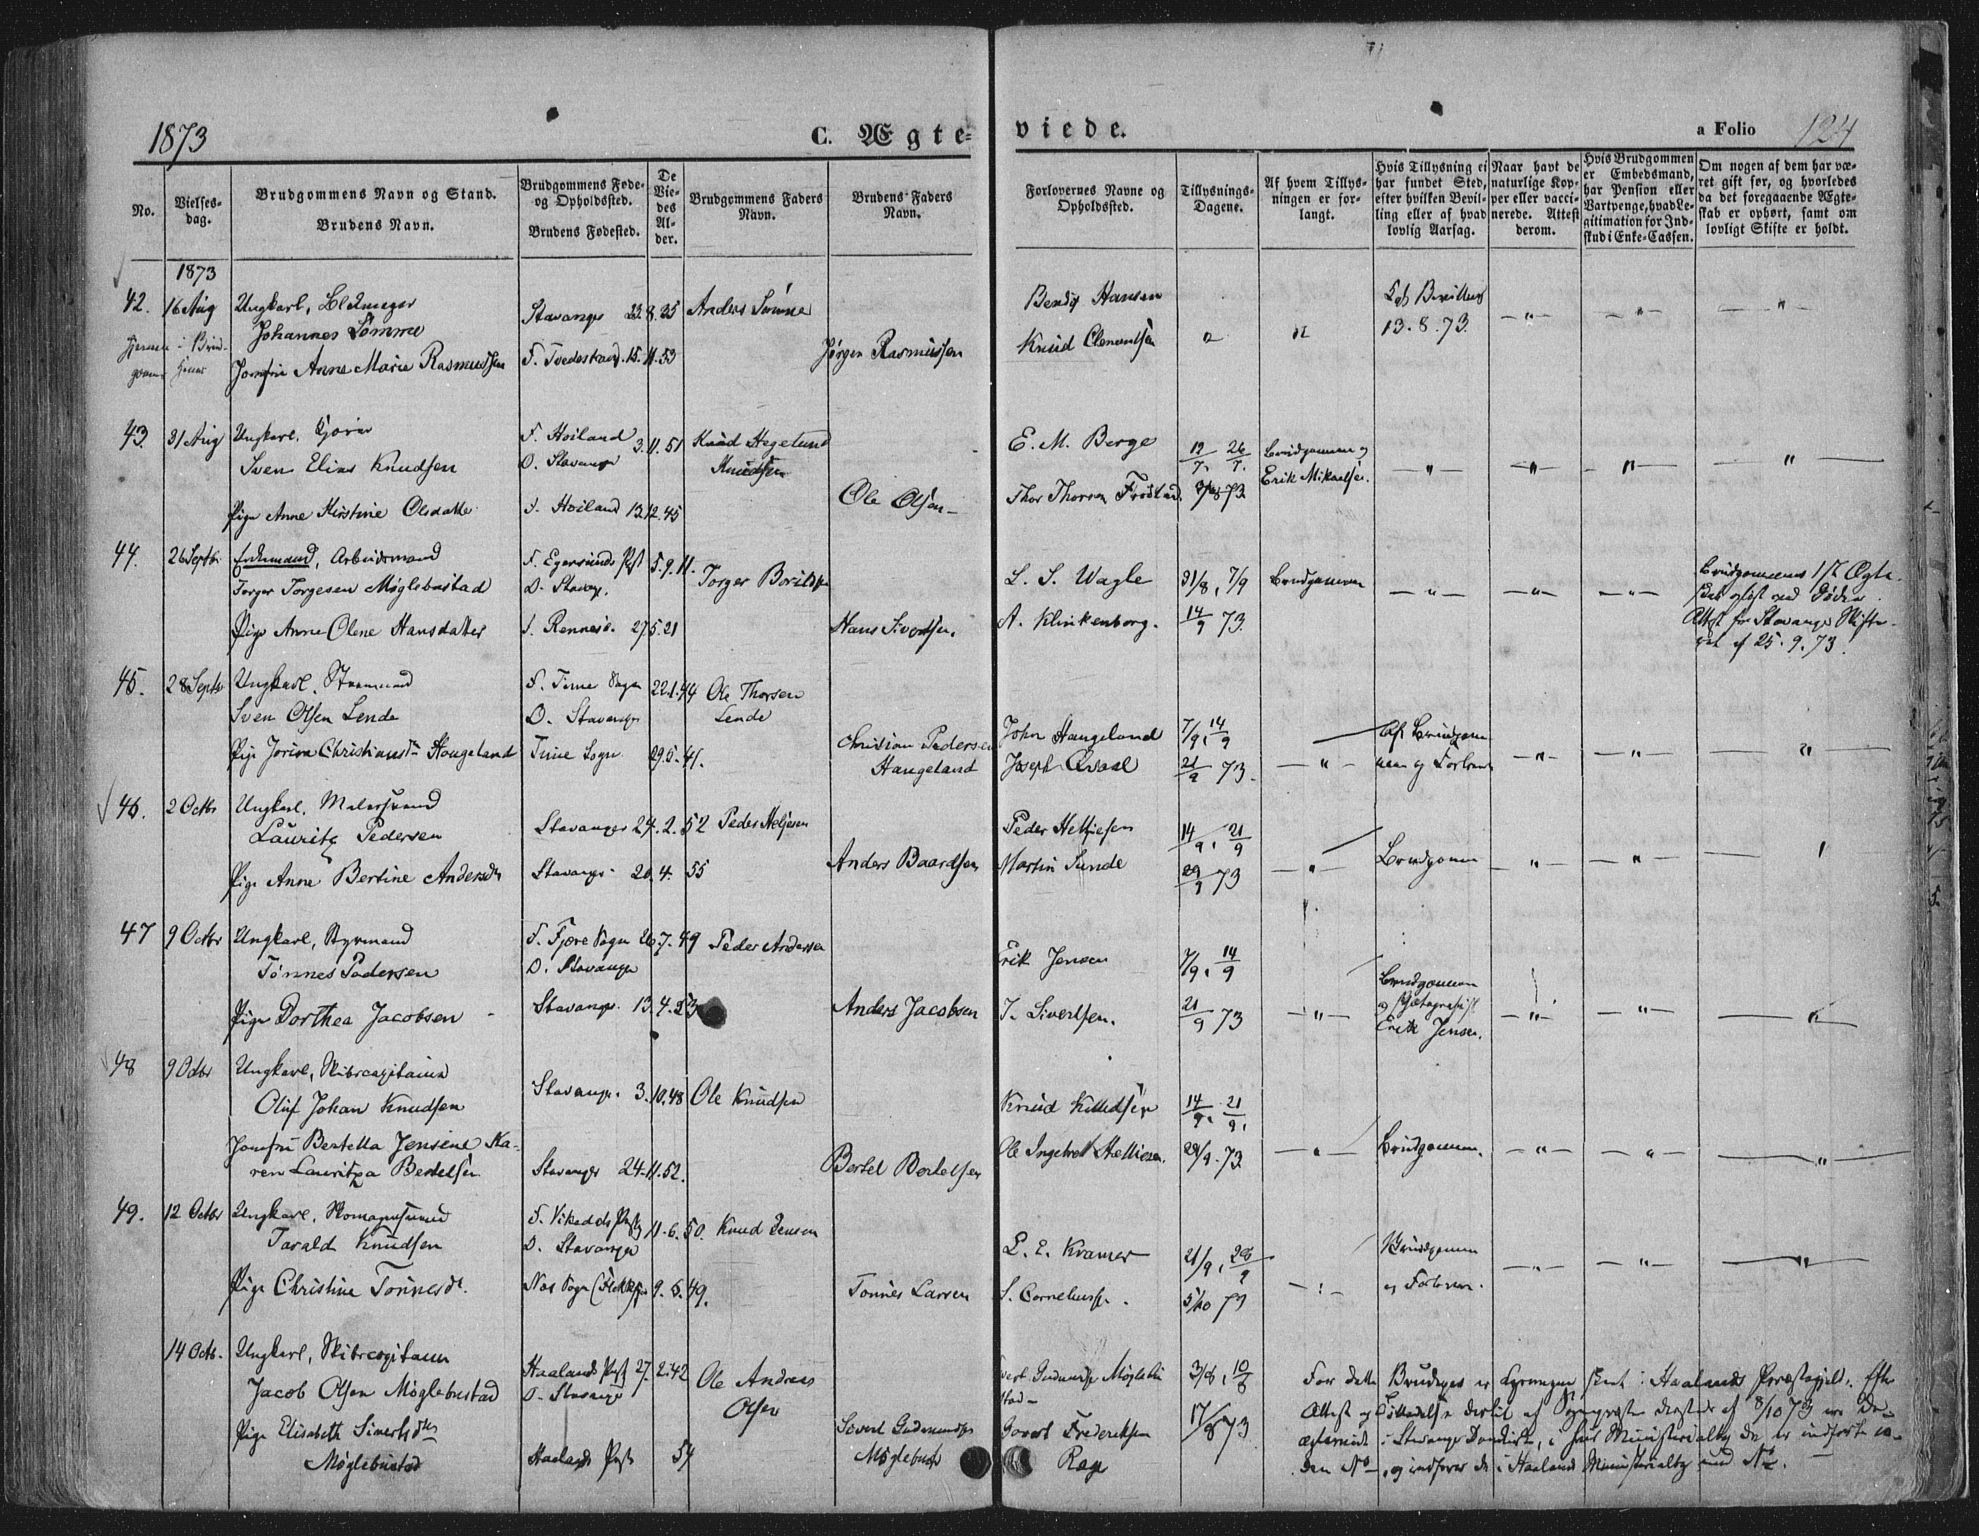 1873
C. Ægte-
viede.
a Folio 124
No.
Vielses-
dag.
Brudgommens Navn og Stand.
Brudens Navn.
Brudgommens Føde-
og Opholdssted.
Brudens Fødested.
De
Vie-
des
Al-
der.
Brudgommens Faders
Navn.
Brudens Faders
Navn.
Forlovernes Navne og
Opholdssted.
Tillysnings-
Dagene.
Af hvem Tillys-
ningen er for-
langt.
Hvis Tillysning ei
har fundet Sted,
efter hvilken Bevil-
ling eller af hvad
lovlig Aarsag.
Naar havt de
naturlige Kop-
per eller vacci-
nerede. Attest
derom.
Hvis Brudgommen
er Embedsmand,
har Pension eller
Vartpenge, hvad Le-
gitimation for Ind-
skud i Enke-Cassen.
Om nogen af dem har væ-
ret gift før, og hvorledes
da det foregaaende Ægte-
skab er ophørt, samt om
lovligt Skifte er holdt.
1873
42. 16 Aug Ungkarl,
Johannes Sømme Stavanger 23.8.35 Anders Sømme
Jomfru Anne Marie Rasmussen F. Tvedestrand 15.11.53 Jørgen Rasmussen
Bendix Hansen
Knud Clemetsen
13.8.73.
43. 31 Aug Ungkarl,
Sven Elias Knudsen F. Høiland O. Stavanger 3.11.51 Knud Hegelund
Knudsen
Pige Anne Kirstine Olsdatter F. Høiland 13.12.45 Ole Olsen
E. M. Berge 19/7. 26/7. Brudgommen og
Erik Mikaelsen.
Thor Thorsen Frøstad 3/8 73.
44. 26 Septbr Enkemand, Arbeidsmand
Torger Torgesen Møglebustad F. Egersunds Pgst O. Stavgr. 5.9.11. Torger
Pige Anne Olene Hansdatter F. Rennesø 27.5.21 Hans Sivertsen.
L. S. Wagle 31/8, 7/9 Brudgommen
A. Klinkenborg. 14/9 73.
Brudgommens 1ste Ægte-
skab opløst ved Døden.
Attest fra Stavanger Skifte-
ret af 25.9.73.
45. 28 Septbr Ungkarl,
Sven Olsen Lende F. Time Sogn O. Stavanger 22.1.44 Ole Thorsen
Lende
Pige Jorina Christiansdtr Haugeland Time Sogn 29.5.41. Christian Pedersen
Haugeland
John Haugeland 7/9, 14/9
Joseph Qvaal 21/9 73.
Af Brudgom-
men og Forlover
46. 2 Octbr Ungkarl, Malersvend
Lauritz Pedersen Stavanger 24.2.52 Peder Heljesen
Pige Anne Bertine Andersdtr Stavanger 20.4.55 Anders Baardsen
Peder Helliesen 14/9, 21/9
Martin Sunde 29/9 73
Brudgommen
47 9 Octbr Ungkarl, Styrmand
Tønnes Pedersen F. Fjære Sogn O. Stavanger 26.7.49 Peder Andersen
Pige Dorthea Jacobsen Stavanger 13.4.53 Anders Jacobsen
Erik Jensen 7/9, 14/9
T. Sivertsen. 21/9 73
Brudgommen
og
Erik Jensen.
48 9 Octbr Ungkarl, Skibscapitain
Oluf Johan Knudsen Stavanger 3.10.48 Ole Knudsen
Jomfru Bertella Jensine Ka-
ren Lauritza Bertelsen Stavanger 24.11.52. Bertel Bertelsen
Knud Killedsen 14/9. 21/9.
Ole Ingebret Helliesen. 29/9. 73.
Brudgommen.
49. 12 Octbr Ungkarl, Skomagersvend
Tarald Knudsen F. Vikedals Pgst O. Stavanger 11.6.50. Knud Jensen
Pige Christine Tønnesdt. Næs Sogn 9.6.49. Tønnes Larsen
L. E. Kramer 21/9, 28/9
S. Corneliussen. 5/10 73
Brudgommen
og Forlover.
14 Octb. Ungkarl, Skibscapitain
Jacob Olsen Møglebustad Haalands Pgst O. Stavanger 27.2.42 Ole Andreas
Olsen
Pige Elisabeth Sivertsdtr
Møglebustad Haalands Pgst 54 Sivert Gudmundsen
Møglebust
Gudmundsen Møglebu-
stad 3/8, 10/8
Govert Frederiksen
Rage 17/8 73
For dette Brudepar er Lysningen skeet i Haalands Præstegjeld. Efter
Attest af Sognepræsten dersteds af 8/10 73 ere De
i Stavanger Domkirke, i hvis Ministerialbog de er indførte
den No, og indføres de i Haalands Ministerialbog und. No.